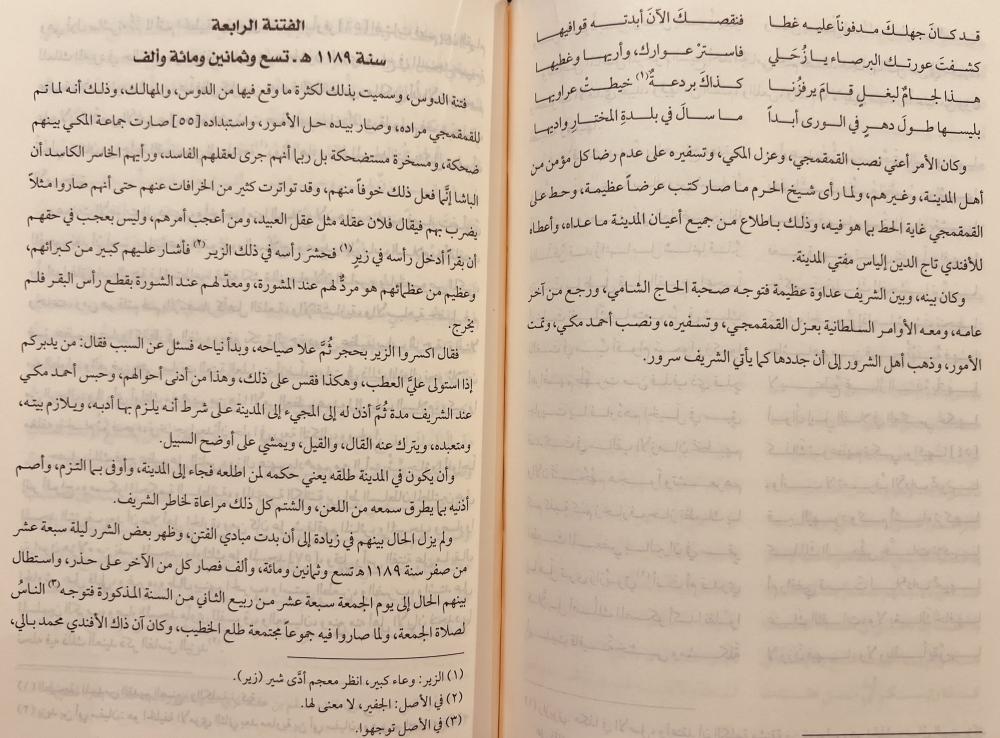 قد كانَ جهلكَ مدفوناً عليه غطا فنقصكَ الآنَ أبدتـه قوافيها
كشفتَ عورتك البرصاء يا زُحَلي فاسترْ عوارك، وأربها وغطيها
هذا لجامٌ لبغلٍ قامَ يرفزُنا كذاكَ بردعةٌ (١) خيطتْ عراويها
بلبسها طولَ دهرٍ في الورى أبداً ما سالَ في بلدةِ المختارِ واديها
وكان الأمر أعني نصب القمقمجي، وعزل المكي، وتسفيره على عدم رضا كل مؤمن من
أهل المدينة، وغيرهم، ولما رأى شيخ الحرم ما صار كتب عرضاً عظيمة، وحط على
القمقمجي غاية الحط بما هو فيه، وذلك باطلاع من جميع أعيان المدينة ما عداه، وأعطاه
للأفندي تاج الدين إلياس مفتي المدينة.
وكان بينه، وبين الشريف عداوة عظيمة فتوجه صحبة الحاج الشامي، ورجع من آخر
عامه، ومعه الأوامر السلطانية بعزل القمقمجي، وتسفيره، ونصب أحمد مكي، وتمت
الأمور، وذهب أهل الشرور إلى أن جددها كما يأتي الشريف سرور.
الفتنة الرابعة
سنة ١١٨٩ هـ. تسع وثمانين ومائة وألف
فتنة الدوس، وسميت بذلك لكثرة ما وقع فيها من الدوس، والمهالك، وذلك أنه لما تم
للقمقمجي مراده، وصار بيده حل الأمور، واستبداده [٥٥] صارت جماعة المكي بينهم
ضحكة، ومسخرة مستضحكة بل ربما أنهم جرى لعقلهم الفاسد، ورأيهم الخاسر الكاسد أن
الباشا إنَّما فعل ذلك خوفاً منهم، وقد تواترت كثير من الخرافات عنهم حتى أنهم صاروا مثلاً
يضرب بهم فيقال فلان عقله مثل عقل العبيد، ومن أعجب أمرهم، وليس بعجب في حقهم
أن بقراً أدخل رأسه في زيرٍ (١) فحشرَ رأسه في ذلك الزير (٢) فأشار عليهم كبير من كبرائهم،
وعظيم من عظمائهم هو مردٌّ لهم عند المشورة، ومعدّ لهم عند الشورة بقطع رأس البقر فلم
يخرج.
فقال اكسروا الزير بحجر ثُمَّ علا صياحه، وبدأ نياحه فسئل عن السبب فقال: من يدبركم
إذا استولى عليَّ العطب، وهكذا فقس على ذلك، وهذا من أدنى أحوالهم، وحبس أحمد مكي
عند الشريف مدة ثُمَّ أذن له إلى المجيء إلى المدينة على شرط أنه يلزم بها أدبه، ويلازم بيته،
ومتعبده، ويترك عنه القال، والقيل، ويمشي على أوضح السبيل.
وأن يكون في المدينة طلقه يعني حكمه لمن اطلعه فجاء إلى المدينة، وأوفى بما التزم، وأصم
أذنيه بما يطرق سمعه من اللعن، والشتم كل ذلك مراعاة لخاطر الشريف.
ولم يزل الحال بينهم في زيادة إلى أن بدت مبادي الفتن، وظهر بعض الشرر ليلة سبعة عشر
من صفر سنة ١١٨٩ هـ تسع وثمانين ومائة، وألف فصار كل من الآخر على حذر، واستطال
بينهم الحال إلى يوم الجمعة سبعة عشر من ربيع الثاني من السنة المذكورة فتوجه (٣) الناسُ
لصلاة الجمعة، ولما صاروا فيه جموعاً مجتمعة طلع الخطيب، وكان آن ذاك الأفندي محمد بالي،
(١) الزير: وعاء كبير، انظر معجم أدَّى شير (زير).
(٢) في الأصل: الجفير، لا معنى لها.
(٣) في الأصل توجهوا.